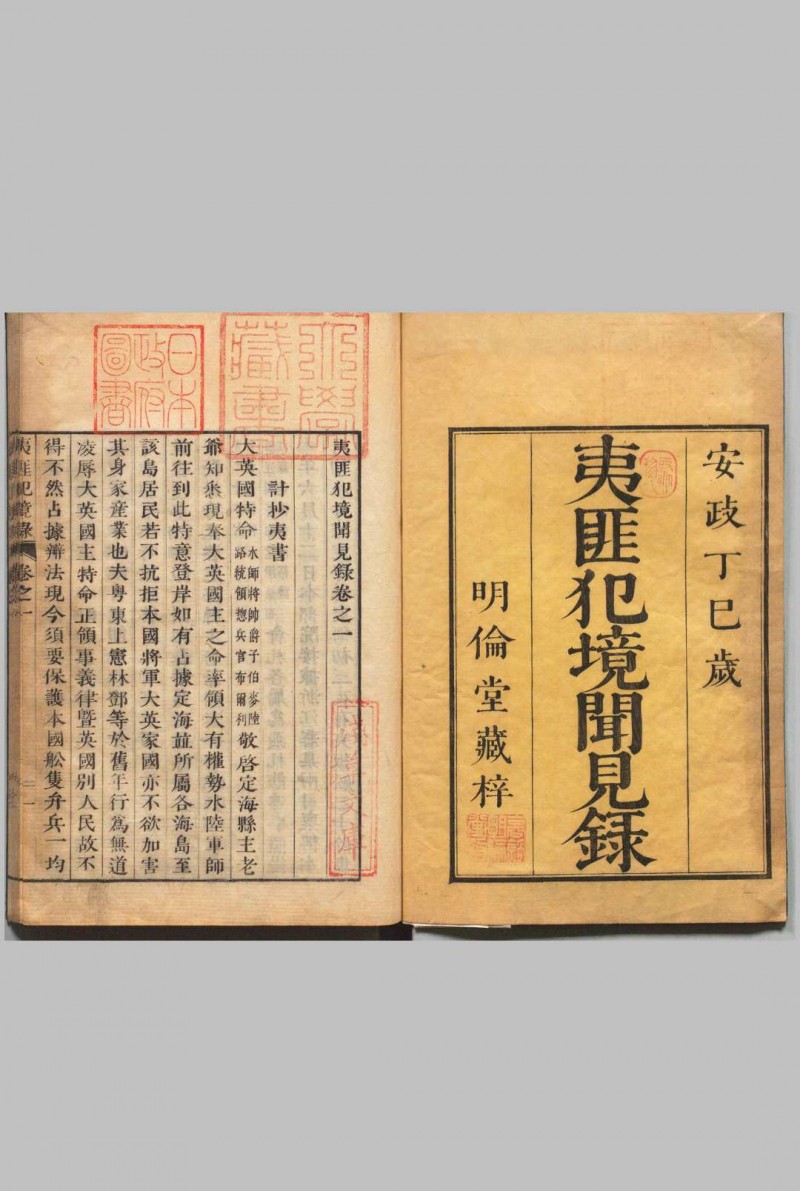 安政丁巳歲
夷匪犯境聞見錄
明倫堂藏梓
夷匪犯境聞見錄卷之一
計抄夷書
大英國特命水師將帥爵子伯麥陸路統領總兵官布爾利敬啓定海縣主老
爺知悉現奉大英國主之命率領大有權勢水陸軍師
前往到此特意登岸如有占據定海並所屬各海島至
該島居民若不抗拒本國將軍大英家國亦不欲加害
其身家産業也夫粤東上憲林鄧等於舊年行爲無道
凌辱大英國主特命正領事義律暨英國別人民故不
得不然占據辦法現今須要保護本國舩隻弁兵一均
夷匪犯境錄 卷之一 一
日本
政府
圖書
藏書